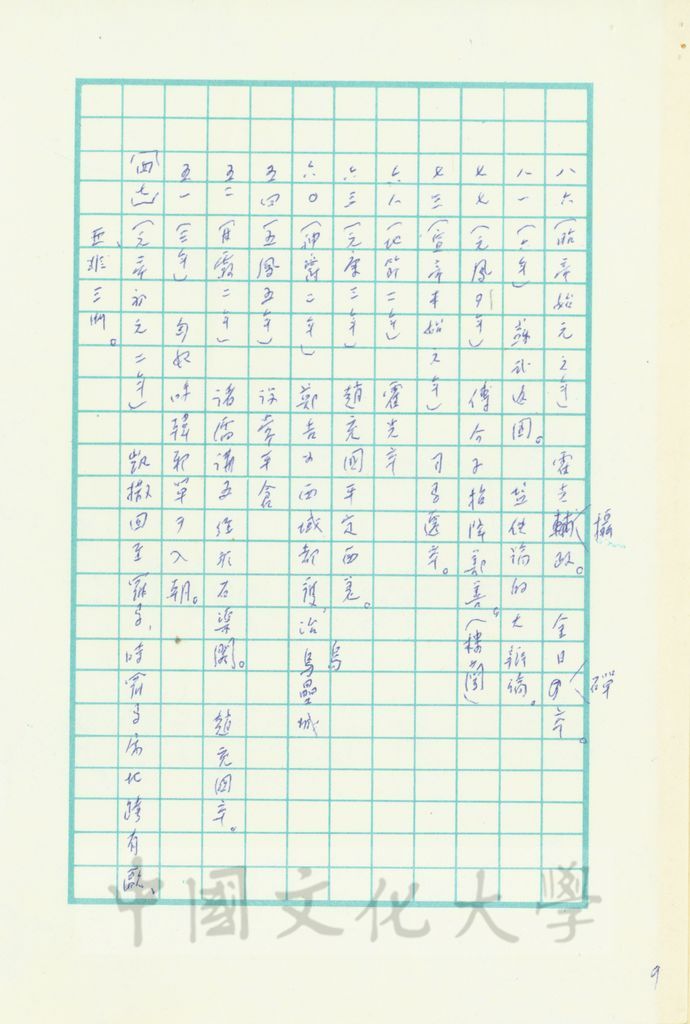 八六（昭帝始元元年）　霍光輔政。　金日磾卒。
攝
磾
八一（六年）　蘇武返國。　鹽鐵論的大辯論。
七七（元鳳四年）　傅介子招降鄯善。（樓蘭）
七三（宣帝本始元年）　司馬遷卒。
六八（地節二年）　霍光卒
六三（元康三年）　趙充國平定西羌。
六〇（神爵二年）　鄭吉為西域都護，治烏壘城
烏
五四（五鳳五年）　設常平倉
五二（甘露二年）　諸儒講五經於石渠閣。　趙充國卒。
五一（三年）　匈奴呼韓邪單于入朝。
（西方）（元帝初元二年）　凱撒回至羅馬，時羅馬屬地跨有歐、
亞、非三洲。
9
中國文化大學